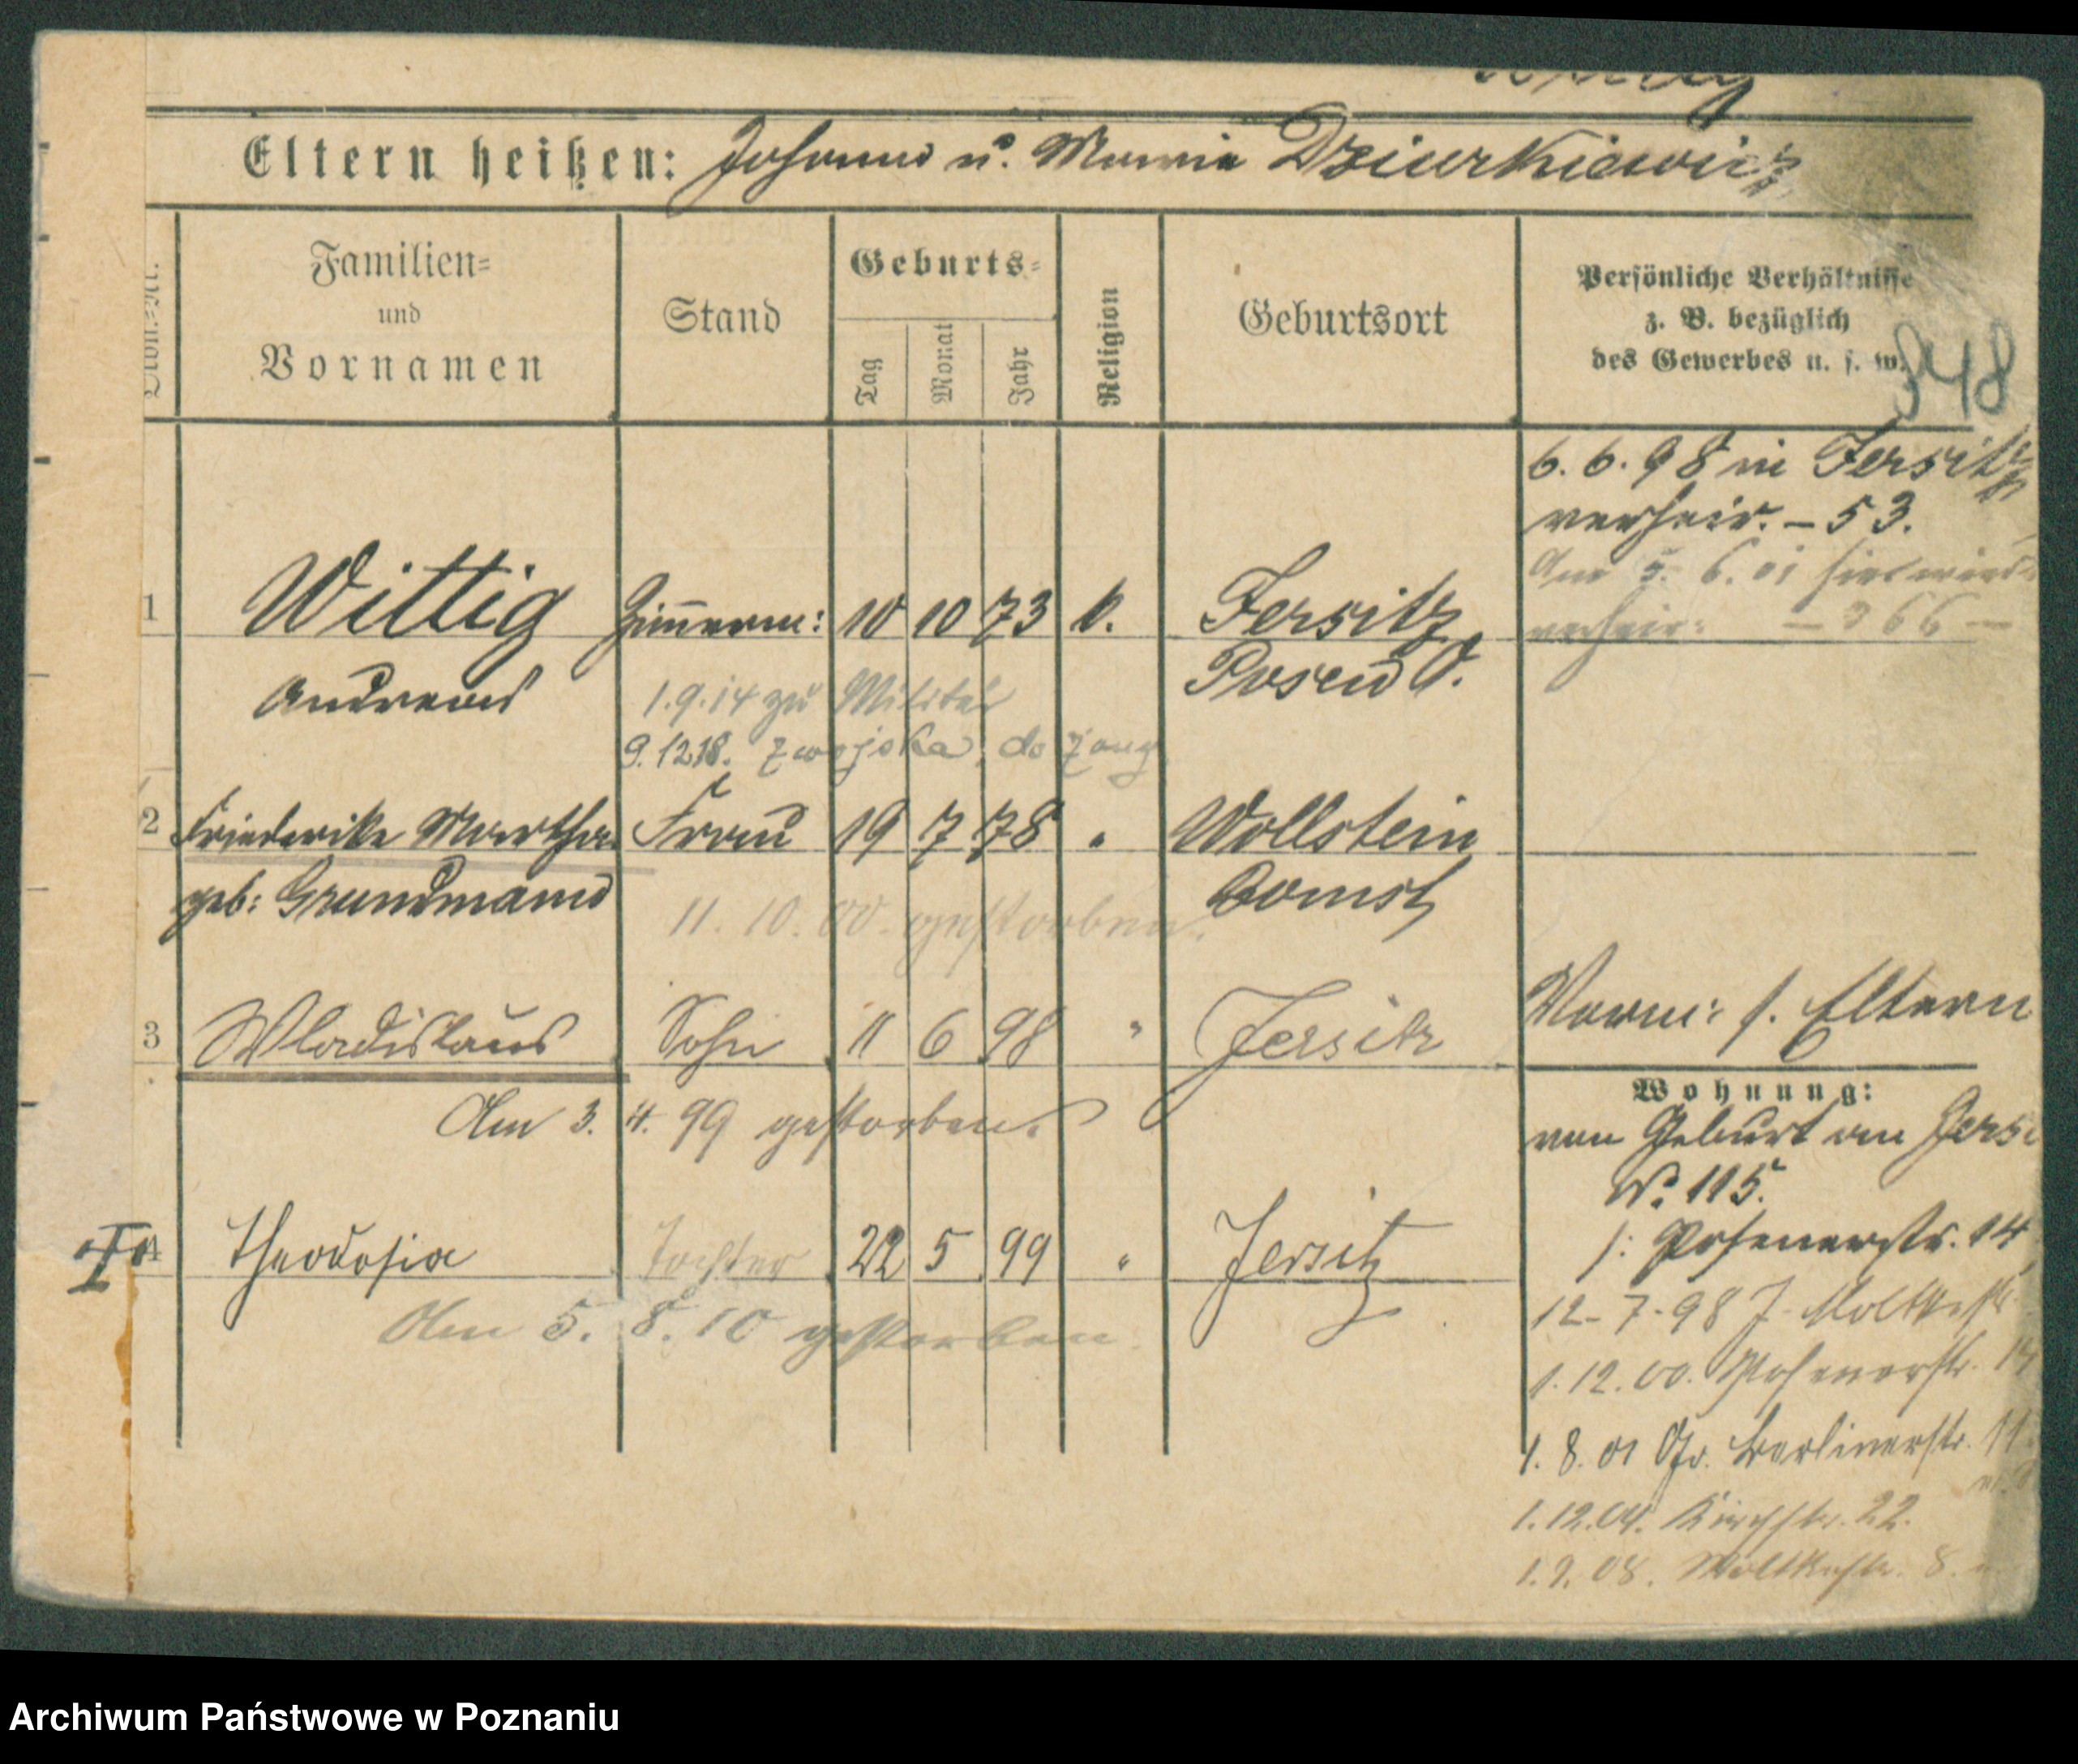 Eltern heißen: Johann u. Maria Dziurkiewicz
Familien=
und
Vornamen
Stand
Geburts=
Tag
Monat
Jahr
Religion
Geburtsort
Persönliche Verhältnisse
z. B. bezüglich
des Gewerbes u. s. w.
348
6. 6. 98 in Jersitz
verheir. – 53.
Am 5. 6. 01 hier wied
verheir: – 366 –
1 Wittig Zimmerm: 10 10 73 k. Jersitz
Andreas Posen O.
1.9.14 zu Militär
9.12.18. z wojska, do
2 Friederike Martha Frau 19 7 78 " Wollstein
geb: Grundmann Bomst
11. 10. 00. gestorben.
3 Wladislaus Sohn 11 6 98 " Jersitz
Verm: s. Eltern
Am 3. 4. 99 gestorben.
Wohnung:
von Geburt an Jers
N. 115.
I 4 Theodosia Tochter 22 5 99 " Jersitz
Am 5. 8. 10 gestorben.
/: Posenerstr. 14
12-7-98 J. Moltkestr.
1. 12. 00. Posenerstr. 14
1. 8. 01 Gr. Berlinerstr. 11
1.12.04. Kirchstr. 22.
1.9.08. Moltkestr. 8.
Archiwum Państwowe w Poznaniu